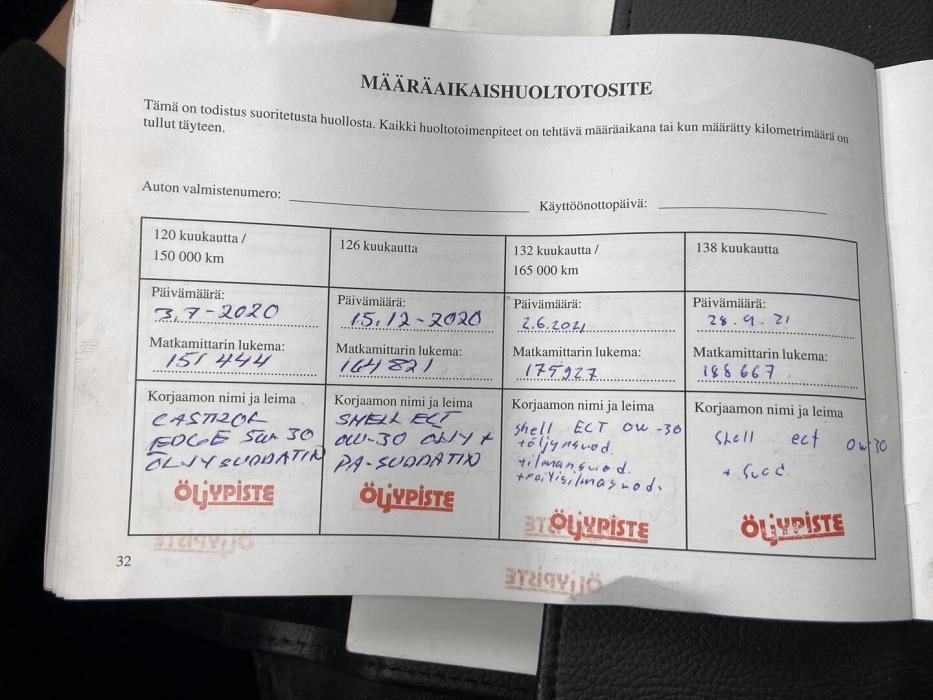 MÄÄRÄAIKAISHUOLTOTOSITE
Tämä on todistus suoritetusta huollosta. Kaikki huoltotoimenpiteet on tehtävä määräaikana tai kun määrätty kilometrimäärä on
tullut täyteen.
Auton valmistenumero:
Käyttöönottopäivä:
120 kuukautta /
150 000 km
126 kuukautta
132 kuukautta /
165 000 km
138 kuukautta
Päivämäärä:
3.7-2020
Päivämäärä:
15.12-2020
Päivämäärä:
2.6.2021
Päivämäärä:
28.9.21
Matkamittarin lukema:
151 444
Matkamittarin lukema:
164 821
Matkamittarin lukema:
175927
Matkamittarin lukema:
188 667
Korjaamon nimi ja leima
CASTROL
EDGE 5W 30
ÖLJYSUODATIN
ÖLJYPISTE
Korjaamon nimi ja leima
SHELL ECT
0W-30 ÖLJY +
PA-SUODATIN
ÖLJYPISTE
Korjaamon nimi ja leima
shell ECT 0W-30
+öljynsuod.
+ilmansuod.
+raitisilmasuod.
ÖLJYPISTE
Korjaamon nimi ja leima
Shell ect 0w30
+ suod.
ÖLJYPISTE
32